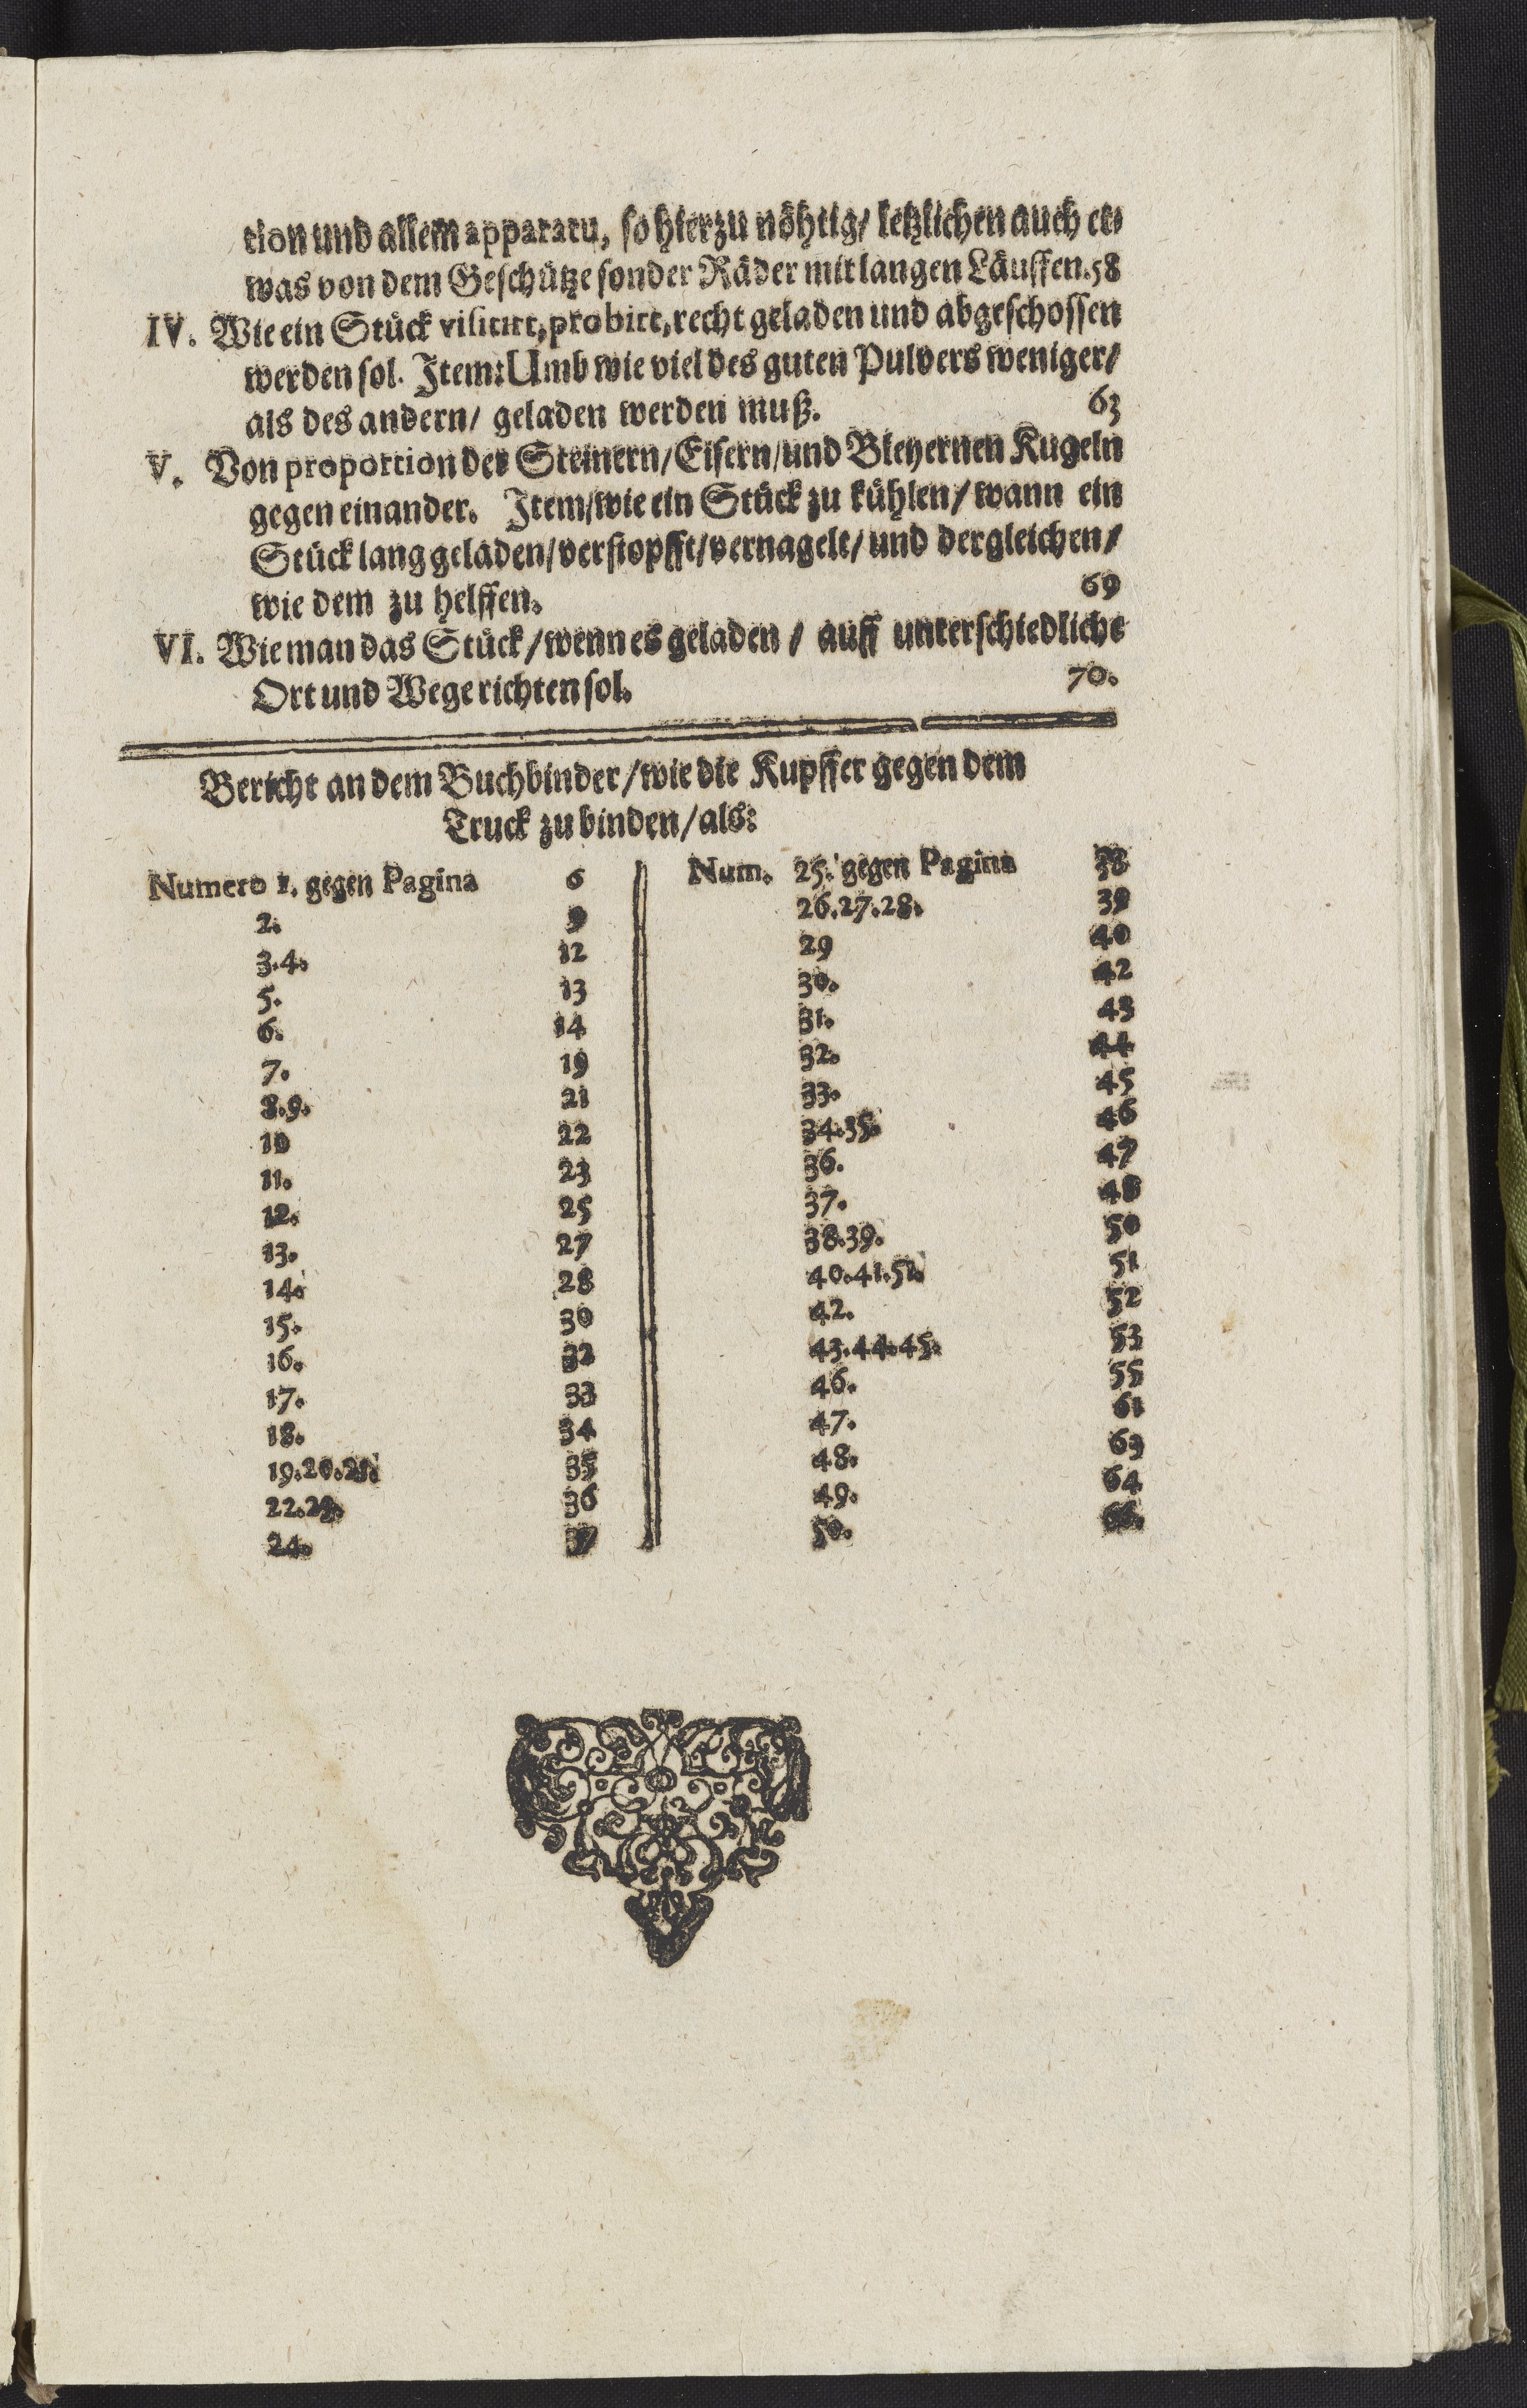 tion und allem apparatu, so hierzu nöhtig/ letzlichen auch et-
was von dem Geschütze sonder Räder mit langen Läuffen. 58
IV. Wie ein Stück visitirt, probirt, recht geladen und abgeschossen
werden sol. Item: Umb wie viel des guten Pulvers weniger/
als des andern/ geladen werden muß. 63
V. Von proportion der Steinern/ Eisern/ und Bleyernen Kugeln
gegen einander. Item/ wie ein Stück zu kühlen/ wann ein
Stück lang geladen/ verstopfft/ vernagelt/ und dergleichen/
wie dem zu helffen. 69
VI. Wie man das Stück/ wenn es geladen/ auff unterschiedliche
Ort und Wege richten sol. 70.
Bericht an dem Buchbinder/ wie die Kupffer gegen dem
Truck zu binden/ als:
Numero 1. gegen Pagina 6
2. 9
3.4. 12
5. 13
6. 14
7. 19
8.9. 21
10 22
11. 23
12. 25
13. 27
14. 28
15. 30
16. 32
17. 33
18. 34
19.20.21. 35
22.23. 36
24. 37
Num. 25. gegen Pagina 38
26.27.28. 39
29 40
30. 42
31. 43
32. 44
33. 45
34.35. 46
36. 47
37. 48
38.39. 50
40.41.51. 51
42. 52
43.44.45. 53
46. 55
47. 61
48. 63
49. 64
50.